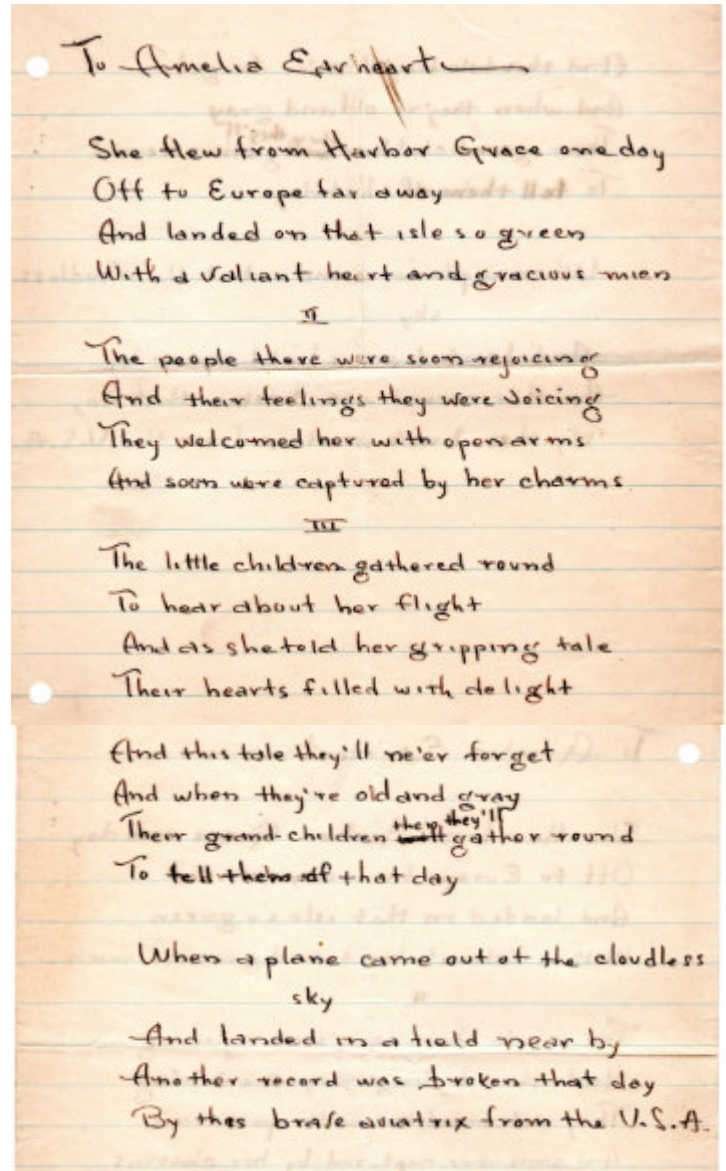 To Amelia Earheart
She flew from Harbor Grace one day
Off to Europe far away
And landed on that isle so green
With a valiant heart and gracious mien
II
The people there were soon rejoicing
And their feelings they were voicing
They welcomed her with open arms
And soon were captured by her charms
III
The little children gathered round
To hear about her flight
And as she told her gripping tale
Their hearts filled with delight
And this tale they'll ne'er forget
And when they're old and gray
then they'll
Their grand-children will gather round
To tell them of that day
When a plane came out of the cloudless
sky
And landed in a field near by
Another record was broken that day
By thes brave aviatrix from the U.S.A.